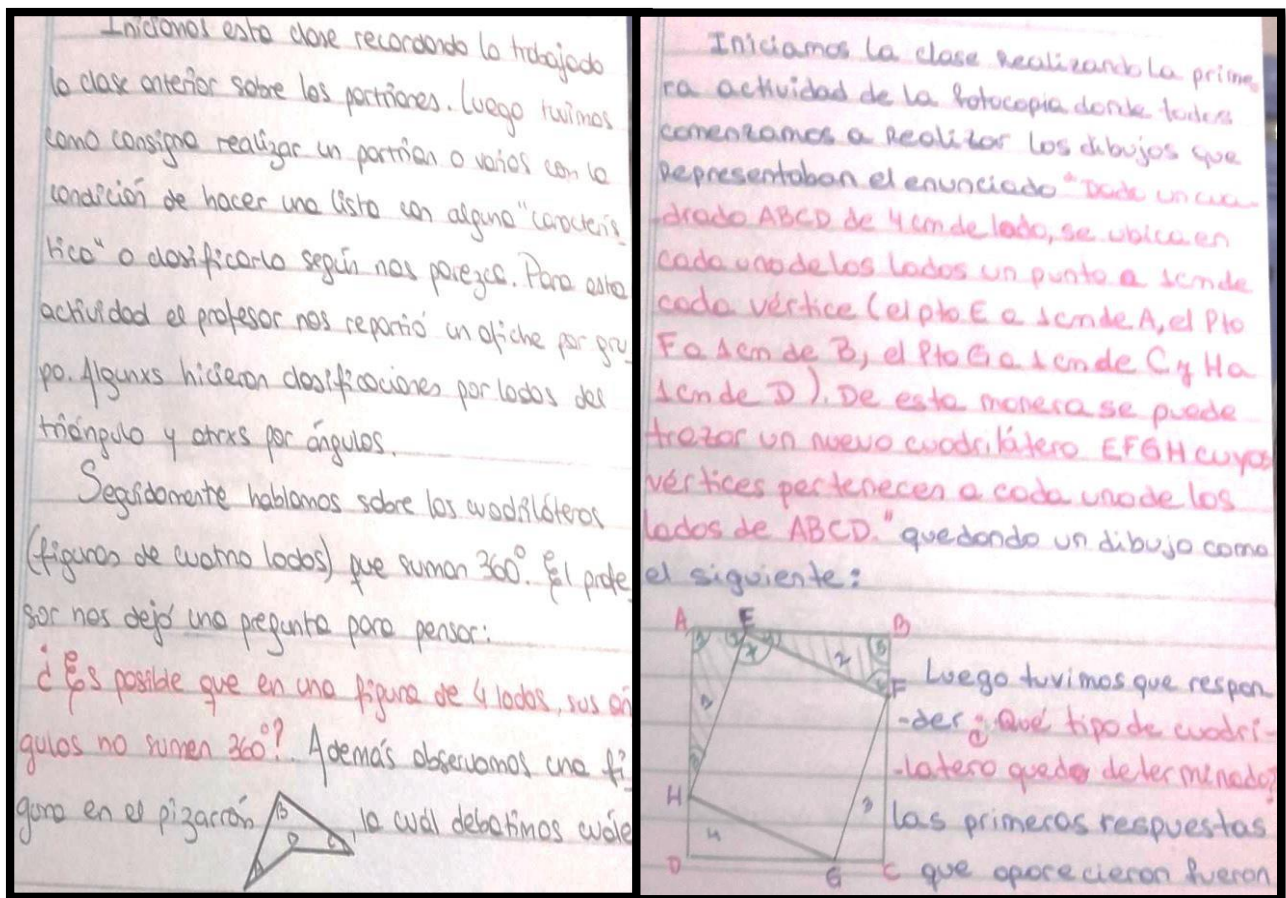 Iniciamos esta clase recordando lo trabajado
la clase anterior sobre los portriones. Luego tuvimos
como consigna realizar un portrión o varios con la
condición de hacer una lista con alguna "caracterís
tica" o clasificarlo según nos parezca. Para esta
actividad el profesor nos repartió un afiche por gru
po. Algunxs hicieron clasificaciones por lados del
triángulo y otrxs por ángulos.
Seguidamente hablamos sobre los cuadriláteros
(figuras de cuatro lados) que suman 360°. El profe
sor nos dejó una pregunta para pensar:
¿Es posible que en una figura de 4 lados, sus án
gulos no sumen 360°? Además observamos una fi
gura en el pizarrón, la cuál debatimos cuále
B
D
C
Iniciamos la clase Realizando La prime
ra actividad de la fotocopia donde todxs
comenzamos a Realizar Los dibujos que
Representaban el enunciado "Dado un cua
drado ABCD de 4 cm de lado, se ubica en
cada uno de los lados un punto a 1cm de
cada vértice (el pto E a 1cm de A, el Pto
F a 1cm de B, el Pto G a 1cm de C y H a
1cm de D). De esta manera se puede
trazar un nuevo cuadrilátero EFGH cuyos
vértices pertenecen a cada uno de los
lados de ABCD." quedando un dibujo como
el siguiente:
A E B
2
F
H
3
4
D G C
Luego tuvimos que respon
-der ¿Qué tipo de cuadri-
-latero queda determinado?
Las primeras respuestas
que aparecieron fueron